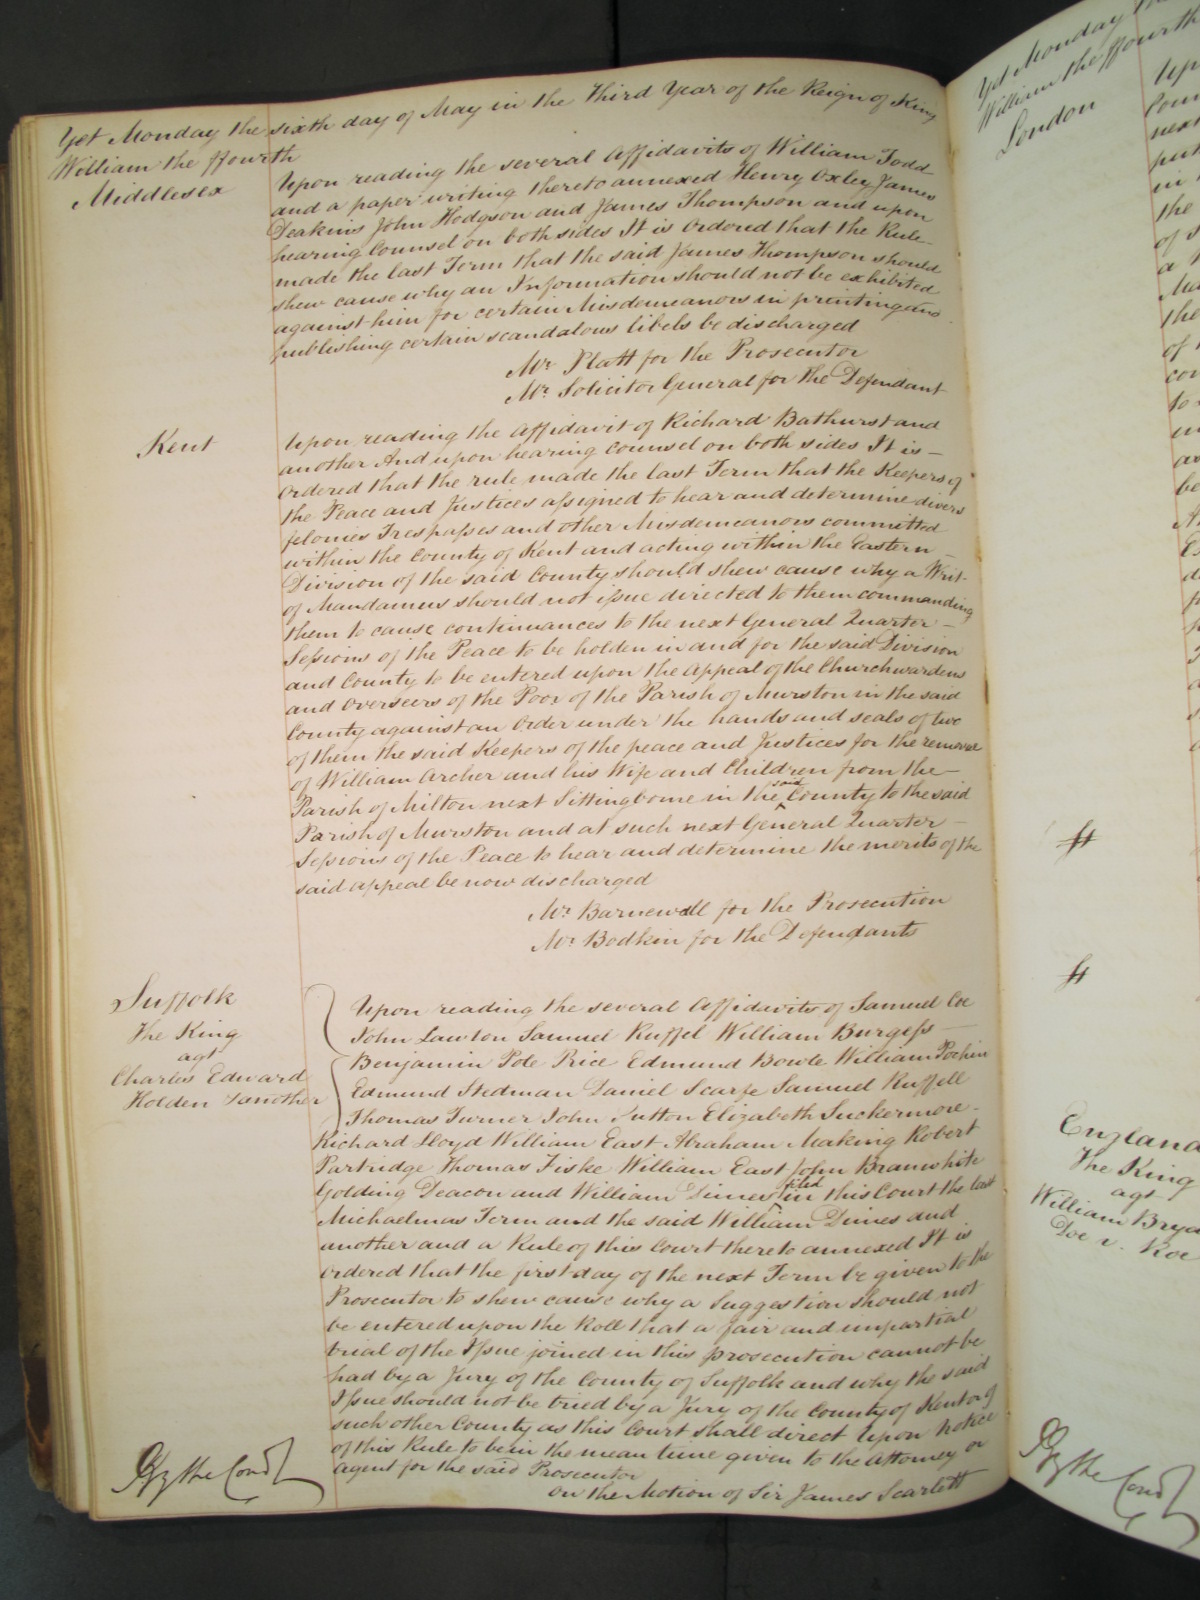 Yet Monday the sixth day of May in the Third Year of the Reign of King
William the ffourth
Middlesex
Upon reading the several Affidavits of William Todd
and a paper writing thereto annexed Henry Oxley James
Deakins John Hodgson and James Thompson and upon
hearing Counsel on both sides It is Ordered that the Rule
made the last Term that the said James Thompson should
shew cause why an Information should not be exhibited
against him for certain Misdemeanors in printing and
publishing certain scandalous libels be discharged
Mr. Platt for the Prosecutor
Mr. Solicitor General for the Defendant
Kent
Upon reading the Affidavit of Richard Bathurst and
another And upon hearing Counsel on both sides It is
Ordered that the rule made the last Term that the Keepers of
the Peace and Justices assigned to hear and determine divers
felonies Trespasses and other Misdemeanors committed
within the County of Kent and acting within the Eastern
Division of the said County should shew cause why a Writ
of Mandamus should not issue directed to them commanding
them to cause continuances to the next General Quarter
Sessions of the Peace to be holden in and for the said Division
and County to be entered upon the Appeal of the Churchwardens
and Overseers of the Poor of the Parish of Murston in the said
County against an Order under the hands and seals of two
of them the said Keepers of the peace and Justices for the removal
of William Archer and his Wife and Children from the
Parish of Milton next Sittingborne in the said County to the said
Parish of Murston and at such next General Quarter
Sessions of the Peace to hear and determine the merits of the
said appeal be now discharged
Mr. Barnewall for the Prosecution
Mr. Bodkin for the Defendants
Suffolk
The King
agt
Charles Edward
Holden & another
Upon reading the several Affidavits of Samuel Coe
John Lawton Samuel Ruffel William Burgess
Benjamin Pole Price Edmund Bowle William Pochin
Edmund Stedman Daniel Scarfe Samuel Ruffell
Thomas Turner John Sutton Elizabeth Suckermore
Richard Lloyd William East Abraham Making Robert
Partridge Thomas Fiske William East John Branwhite
Golding Deacon and William Dimes filed in this Court the last
Michaelmas Term and the said William Dimes and
another and a Rule of this Court thereto annexed It is
Ordered that the first day of the next Term be given to the
Prosecutor to shew cause why a Suggestion should not
be entered upon the Roll that a fair and impartial
trial of the Issue joined in this prosecution cannot be
had by a Jury of the County of Suffolk and why the said
Issue should not be tried by a Jury of the County of Kent or of
such other County as this Court shall direct Upon Notice
of this Rule to be in the mean time given to the Attorney or
agent for the said Prosecutor
On the Motion of Sir James Scarlett
By the Court
Yet Monday
William the ffourth
London
England
The King
agt
William
Doe v. Roe
By the Court